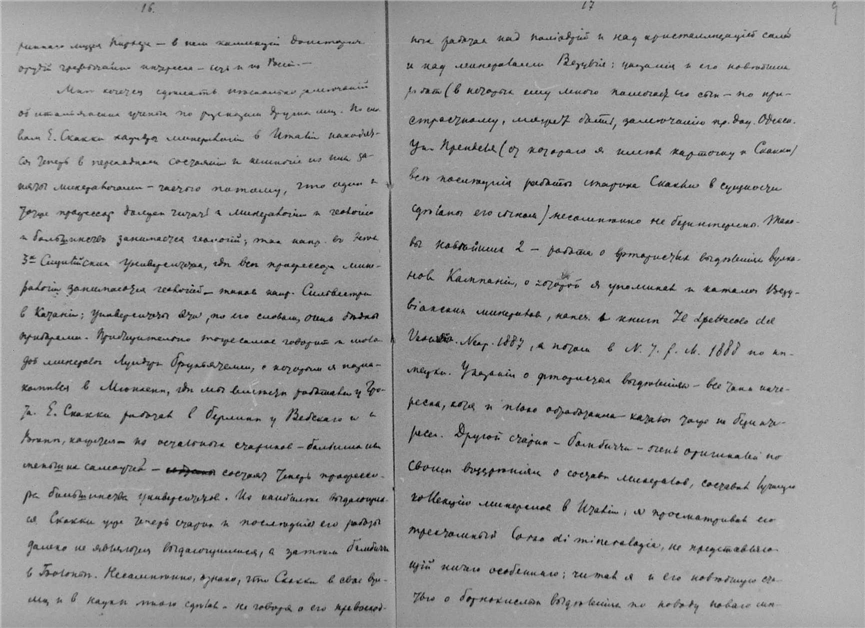 16.
— в нем коллекций
— есть и из Росс. —
Мне хочется сделать несколько замечаний
об итальянских ученых по рассказам других лиц. По сло-
вам Е. Скакки кафедры минералогии в Италии находят-
ся теперь в переходном состоянии и немногие из них за-
няты минералогами — частью потому, что один и
тот же профессор должен читать и минералогию и геологию
и большинство занимается геологией; так напр. во всех
3х Сицилийских университетах, где все профессора мине-
ралогии занимаются геологией — таков напр. Сильвестри
в Катании; университеты эти, по его словам, очень бедны
приборами. Приблизительно то же самое говорит и моло-
дой минералог Луиджи Бруньятелли, с которым я позна-
комился в Мюнхене, где мы вместе работали у Гро-
та. Е. Скакки работал в Берлине у Вебского и в
Бонне, кажется — но остальные старики — большие или
меньшие самоучки — состоят теперь профессо-
ра большинства университетов. Из наиболее выдающих-
ся Скакки уже теперь старик и последние его работы
далеко не являются выдающимися, а затем Бомбиччи
в Болонье. Несомненно, однако, что Скакки в свое вре-
мя и в науке много сделал — не говоря о его превосход-
17
9
ных работах над полиэдрией и над кристаллизацией солей
и над минералами Везувия: указания и его новейшие
работы (в которых ему много помогает его сын — по при-
страстному, может быть, замечанию пр. доц. Одесск.
Ун. Пренделя (от которого я имел карточку к Скакки)
все последние работы старика Скакки в сущности
сделаны его сыном) несомненно не безинтересны. Тако-
вы новейшие 2 — работа о фтористых выделениях вулка-
нов Кампании, о которой я упоминал и каталог Везу-
вианских минералов, напеч. в книге Il Spettacolo del
Vesuvio. Nap. 1887, а потом в N. J. f. M. 1888 по не-
мецки. Указания о фтористых выделениях — все таки инте-
ресны, хотя и плохо обработаны кажется тоже не безинте-
ресн. Другой старик — Бомбиччи — очень оригинален по
своим воззрениям о составе минералов, составил лучшую
коллекцию минералов в Италии; я просматривал его
трехтомный Corso di mineralogia, не представляю-
щий ничего особенного; читал я и его новейшую ста-
тью о борнокислых выделениях по поводу нового ми-